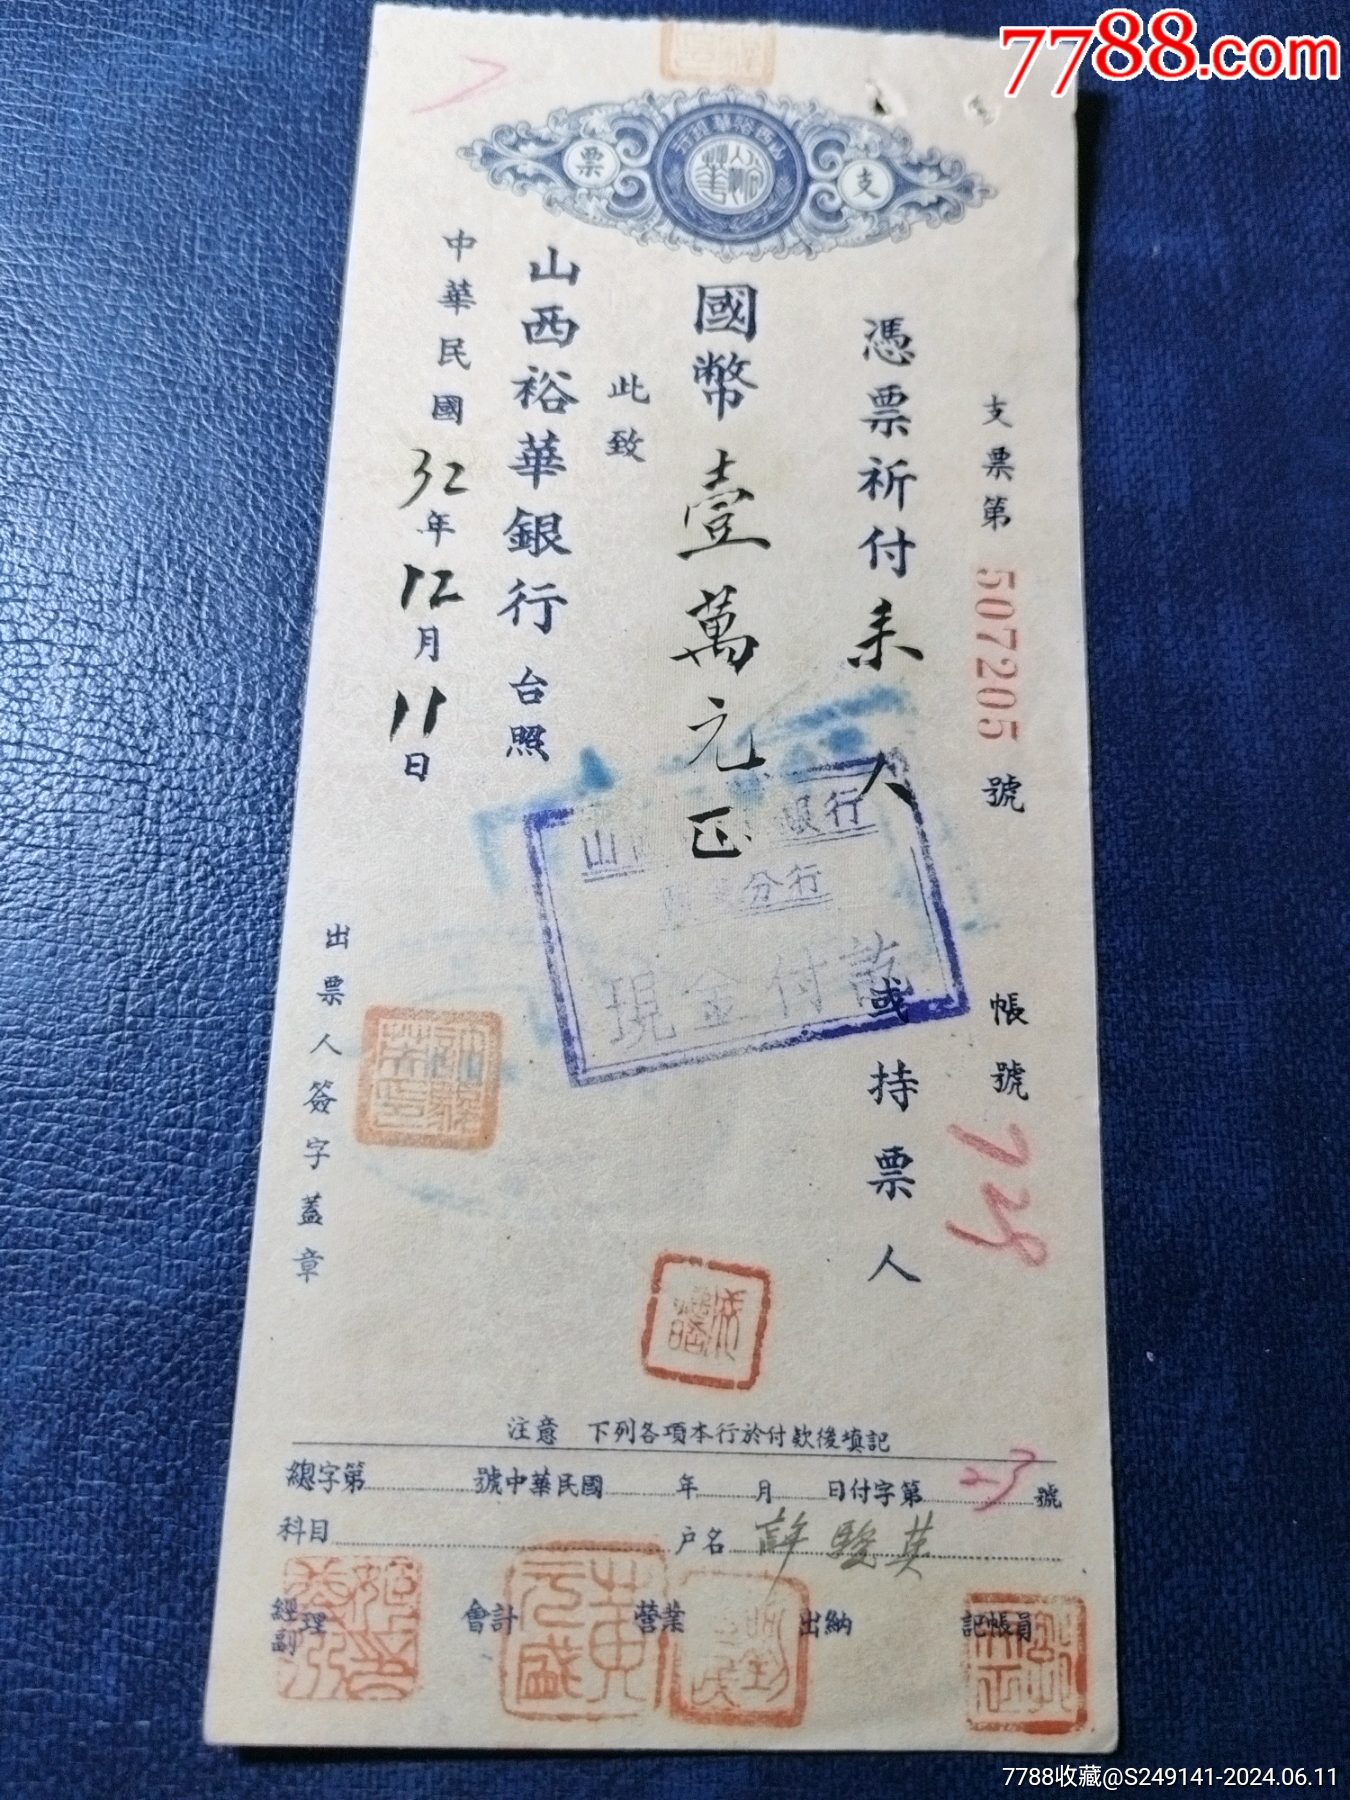 7788.com
山西裕華銀行
支票
支票第 507205 號 帳號 728
憑票祈付 来人 或持票人
國幣 壹萬元正
此致
山西裕華銀行 台照
中華民國 32 年 12 月 11 日
出票人簽字蓋章
山 銀行
分行
現金付訖
注意 下列各項本行於付款後填記
總字第 號中華民國 年 月 日付字第 23 號
科目 戶名 許駿英
經副理 會計 營業 出納 記帳員
黄元盛
7788收藏@S249141-2024.06.11